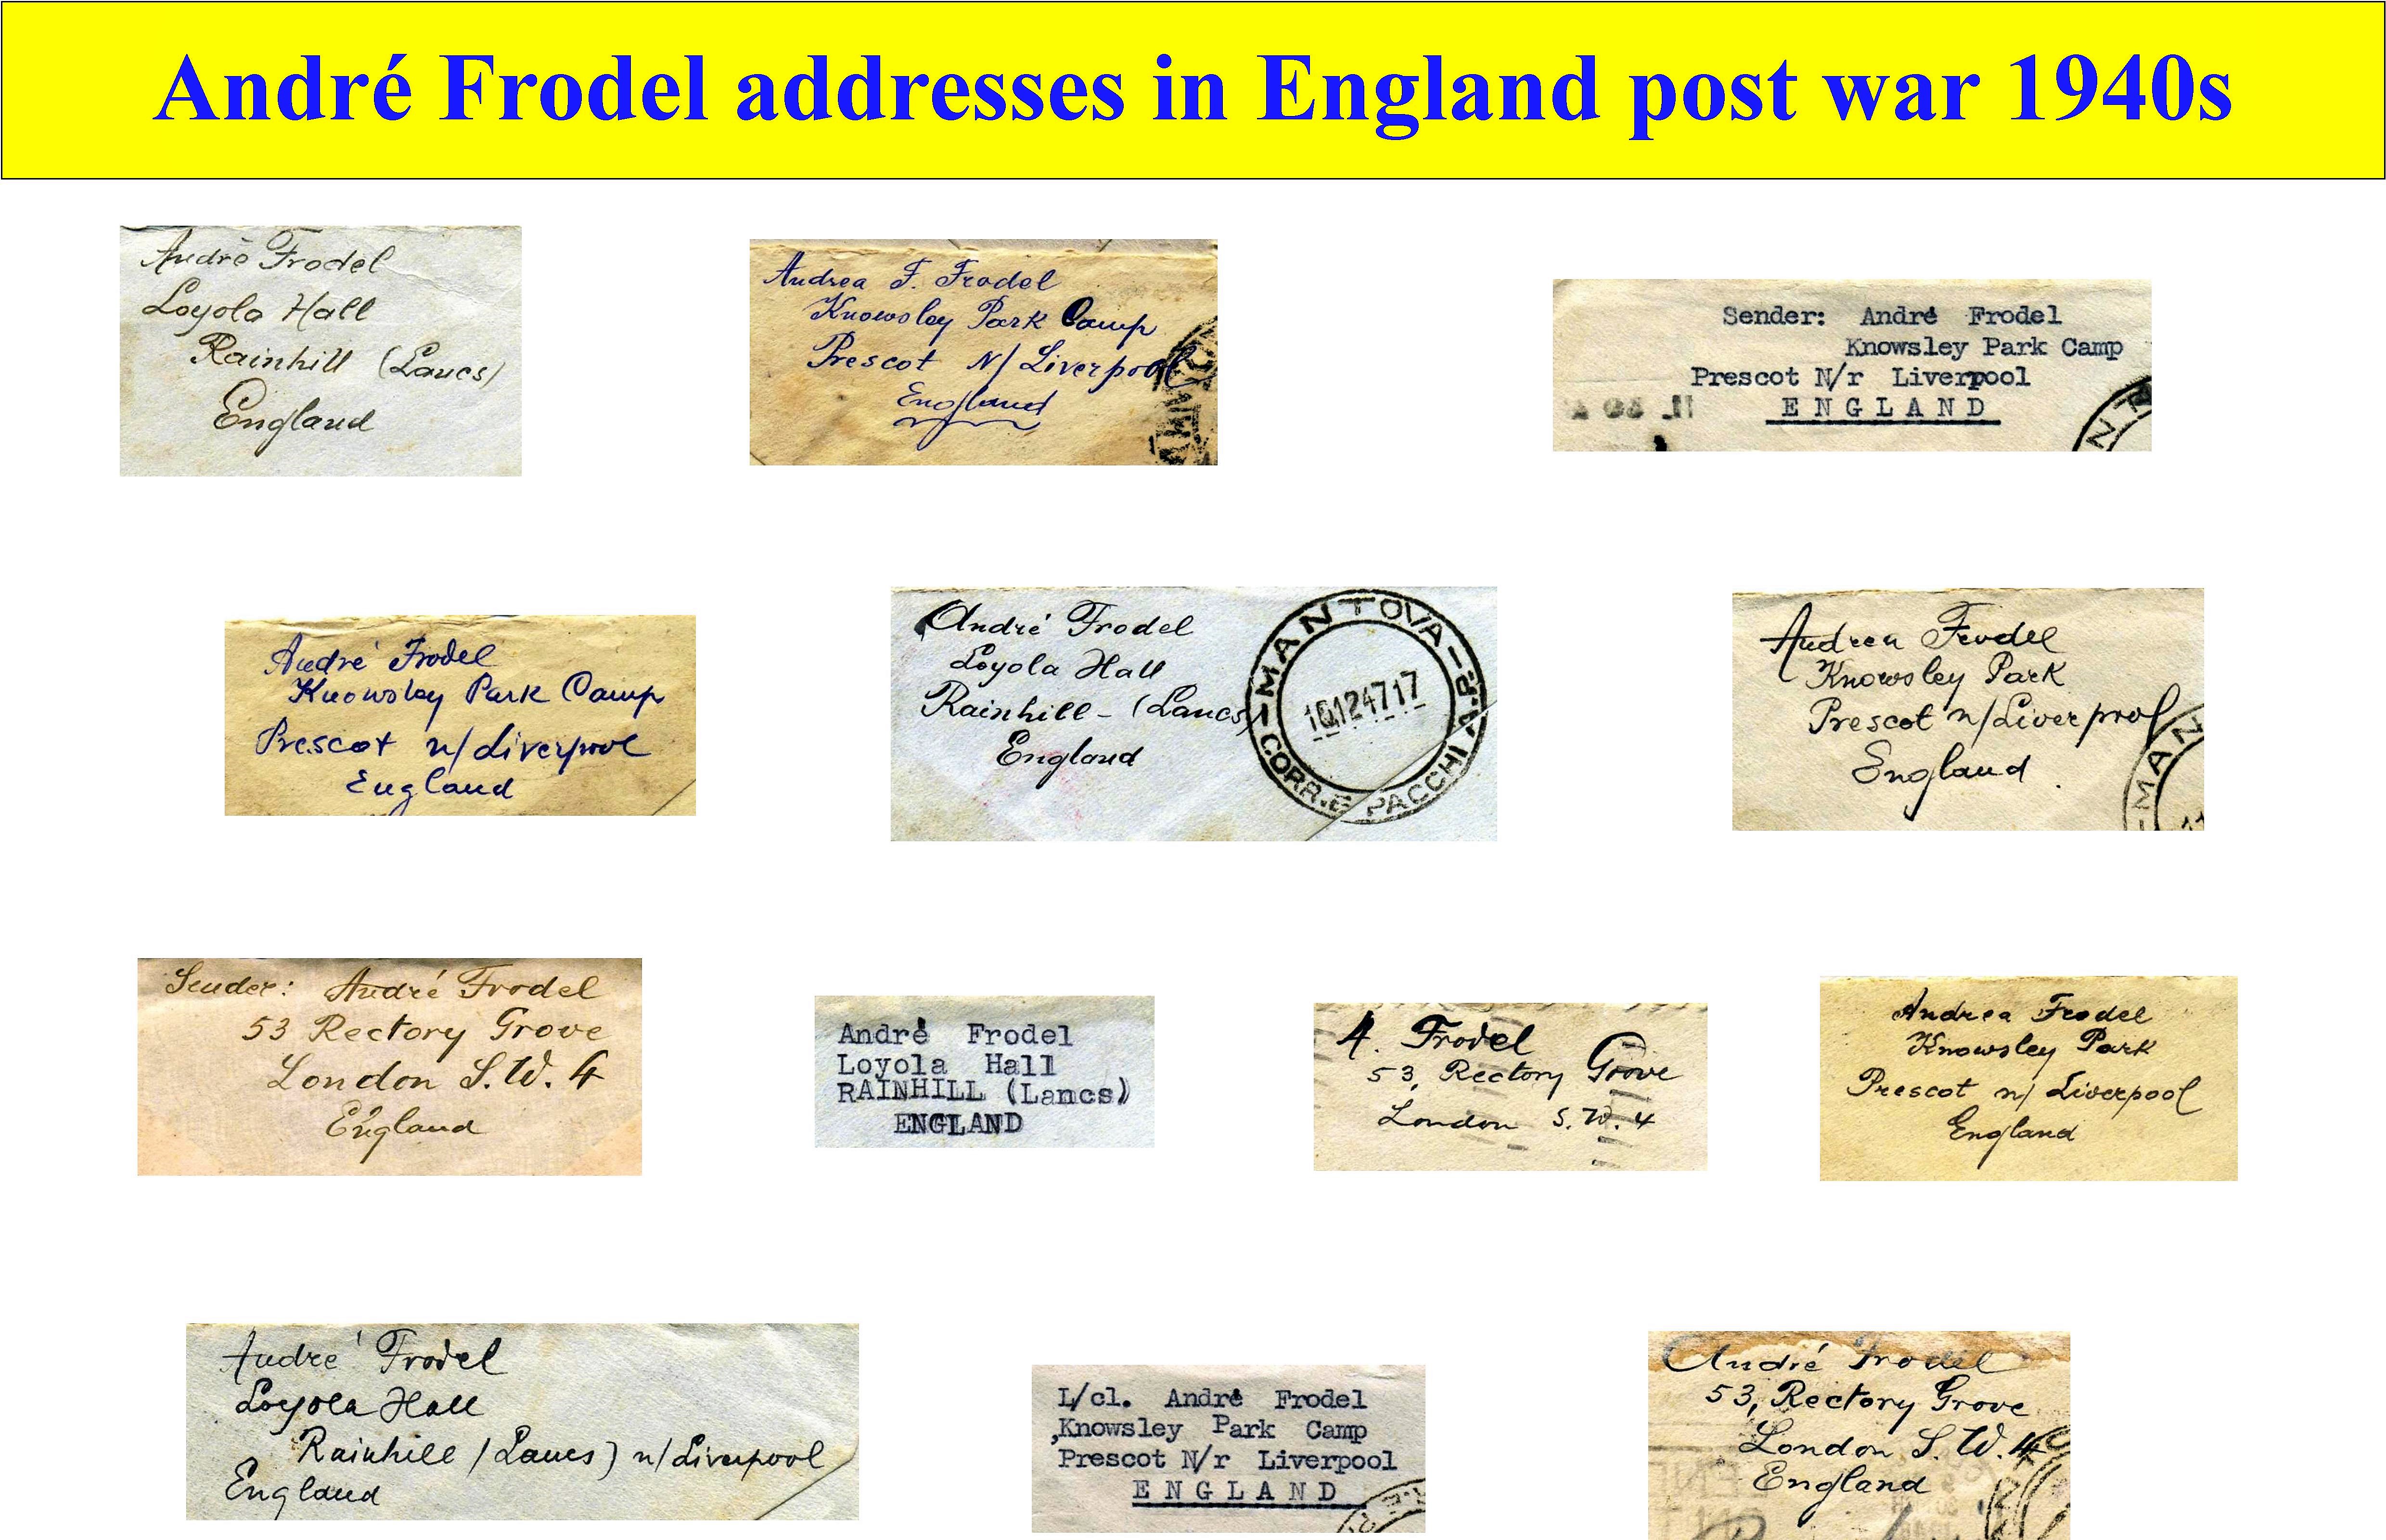 André Frodel addresses in England post war 1940s
André Frodel
Loyola Hall
Rainhill (Lancs)
England
Andrea F. Frodel
Knowsley Park Camp
Prescot N/ Liverpool
England
Sender: André Frodel
Knowsley Park Camp
Prescot N/r Liverpool
ENGLAND
André Frodel
Knowsley Park Camp
Prescot n/ Liverpool
England
André Frodel
Loyola Hall
Rainhill - (Lancs)
England
MANTOVA - R.P.
CORR. E PACCHI
Andrea Frodel
Knowsley Park
Prescot n/ Liverpool
England
MAN
Sender: André Frodel
53 Rectory Grove
London S.W. 4
England
André Frodel
Loyola Hall
RAINHILL (Lancs)
ENGLAND
A. Frodel
53, Rectory Grove
London S.W. 4
Andrea Frodel
Knowsley Park
Prescot n/ Liverpool
England
André Frodel
Loyola Hall
Rainhill (Lancs) n/ Liverpool
England
L/cl. André Frodel
Knowsley Park Camp
Prescot N/r Liverpool
ENGLAND
André Frodel
53, Rectory Grove
London S.W. 4
England